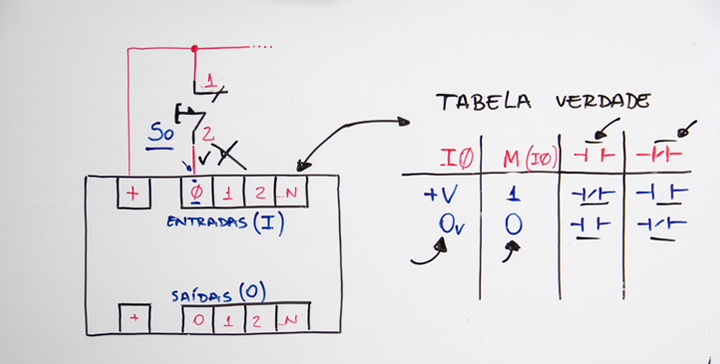 1
S0
2
+ Ø 1 2 ..N
ENTRADAS (I)
SAÍDAS (O)
+ 0 1 2 ..N
TABELA VERDADE
IØ M(IØ)
+V 1
0v 0